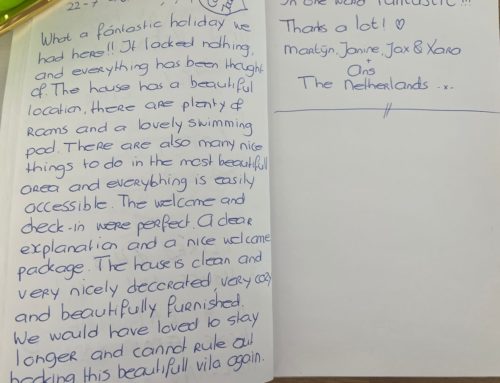 22-7
What a fantastic holiday we
had here!! It lacked nothing,
and everything has been thought
of. The house has a beautiful
location, there are plenty of
rooms and a lovely swimming
pool. There are also many nice
things to do in the most beautiful
area and everything is easily
accessible. The welcome and
check-in were perfect. A clear
explanation and a nice welcome
package. The house is clean and
very nicely decorated, very cozy
and beautifully furnished.
We would have loved to stay
longer and cannot rule out
booking this beautifull vila again.
In one word fantastic!!!
Thanks a lot! ♡
Martijn, Janine, Jax & Xara
+
Ans
The Netherlands